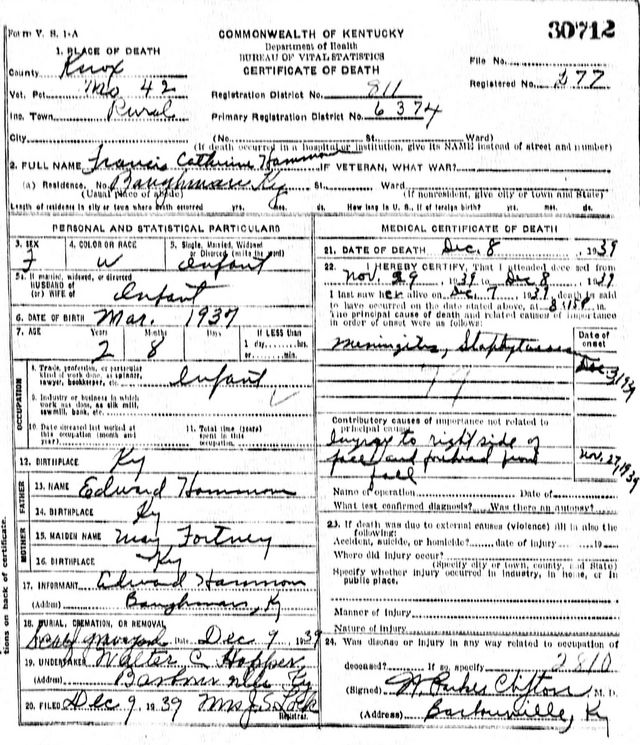 Form V. S. 1-A
COMMONWEALTH OF KENTUCKY
Department of Health
BUREAU OF VITAL STATISTICS
CERTIFICATE OF DEATH
30712
File No.
Registered No. 577
1. PLACE OF DEATH
County Knox
Vot. Pct. No 42
Inc. Town Rural
Registration District No. 811
Primary Registration District No. 6374
City (No. St. Ward)
(If death occurred in a hospital or institution, give its NAME instead of street and number)
2. FULL NAME Francis Catherine Hammon IF VETERAN, WHAT WAR?
(a) Residence. No. Baughman Ky St. Ward
(Usual place of abode) (If nonresident, give city or town and State)
Length of residence in city or town where death occurred yrs. mos. ds. How long in U. S., if of foreign birth? yrs. mos. ds.
PERSONAL AND STATISTICAL PARTICULARS
3. SEX F
4. COLOR OR RACE W
5. Single, Married, Widowed or Divorced (write the word) Infant
5a. If married, widowed, or divorced
HUSBAND of
(or) WIFE of Infant
6. DATE OF BIRTH Mar. 1937
7. AGE Years 2 Months 8 Days If LESS than 1 day, hrs. or min.
OCCUPATION
8. Trade, profession, or particular kind of work done, as spinner, sawyer, bookkeeper, etc. Infant
9. Industry or business in which work was done, as silk mill, sawmill, bank, etc.
10. Date deceased last worked at this occupation (month and year)
11. Total time (years) spent in this occupation
12. BIRTHPLACE Ky
FATHER
13. NAME Edward Hammon
14. BIRTHPLACE Ky
MOTHER
15. MAIDEN NAME May Fortney
16. BIRTHPLACE Ky
17. INFORMANT Edward Hammon
(Address) Baughman, Ky
18. BURIAL, CREMATION, OR REMOVAL
Graveyard Date Dec 9 1939
19. UNDERTAKER Walter C Hopper
(Address) Barbourville Ky
20. FILED Dec 9, 1939 Mrs
Registrar.
tions on back of certificate.
MEDICAL CERTIFICATE OF DEATH
21. DATE OF DEATH Dec. 8, 1939
22. I HEREBY CERTIFY, That I attended deceased from
Nov. 29 1939 to Dec 8, 1939
I last saw her alive on Dec. 7 1939, death is said
to have occurred on the date stated above, at
The principal cause of death and related causes of importance
in order of onset were as follows:
Date of onset
Meningitis,
Dec 3, 1939
Contributory causes of importance not related to
principal cause:
Injury to right side of
face and forehead from
fall
Nov. 27, 1939
Name of operation Date of
What test confirmed diagnosis? Was there an autopsy?
23. If death was due to external causes (violence) fill in also the
following:
Accident, suicide, or homicide? date of injury 19
Where did injury occur?
(Specify city or town, county, and State)
Specify whether injury occurred in industry, in home, or in
public place.
Manner of Injury
Nature of Injury
24. Was disease or injury in any way related to occupation of
deceased? If so, specify 2810
(Signed) Parker Clifton M. D.
(Address) Barbourville, Ky